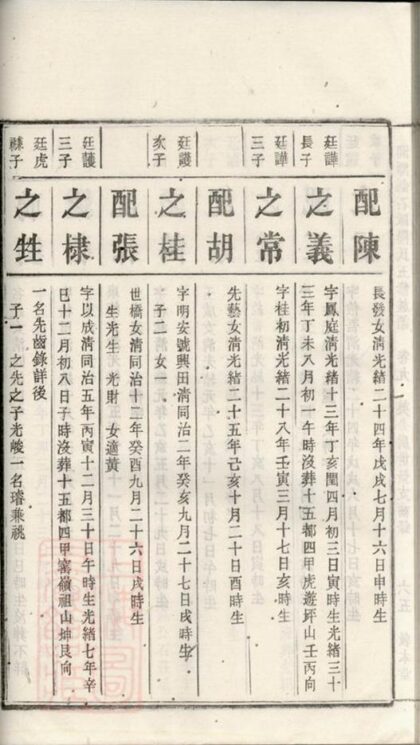 配陳
長發女清光緒二十四年戊戌七月十六日申時生
廷譁
長子
之義
字鳳庭清光緒十三年丁亥閏四月初三日寅時生光緒三十
三年丁未八月初一午時沒葬十五都四甲虎遊坪山壬丙向
廷譁
三子
之常
字桂初清光緒二十八年壬寅三月十七日亥時生
配胡
先藝女清光緒二十五年己亥十月二十日酉時生
廷護
次子
之桂
字明安號興田清同治二年癸亥九月二十七日戌時生
子二 女一
配張
世橋女清同治十二年癸酉九月二十六日戌時生
生光生 光財 女適黃
廷護
三子
之棣
字以成清同治五年丙寅十二月三十日午時生光緒七年辛
巳十二月初八日子時沒葬十五都四甲窰嶺祖山坤艮向
廷虎
継子
之甡
一名先齒錄詳後
子一 之先之子光崚一名璿兼祧